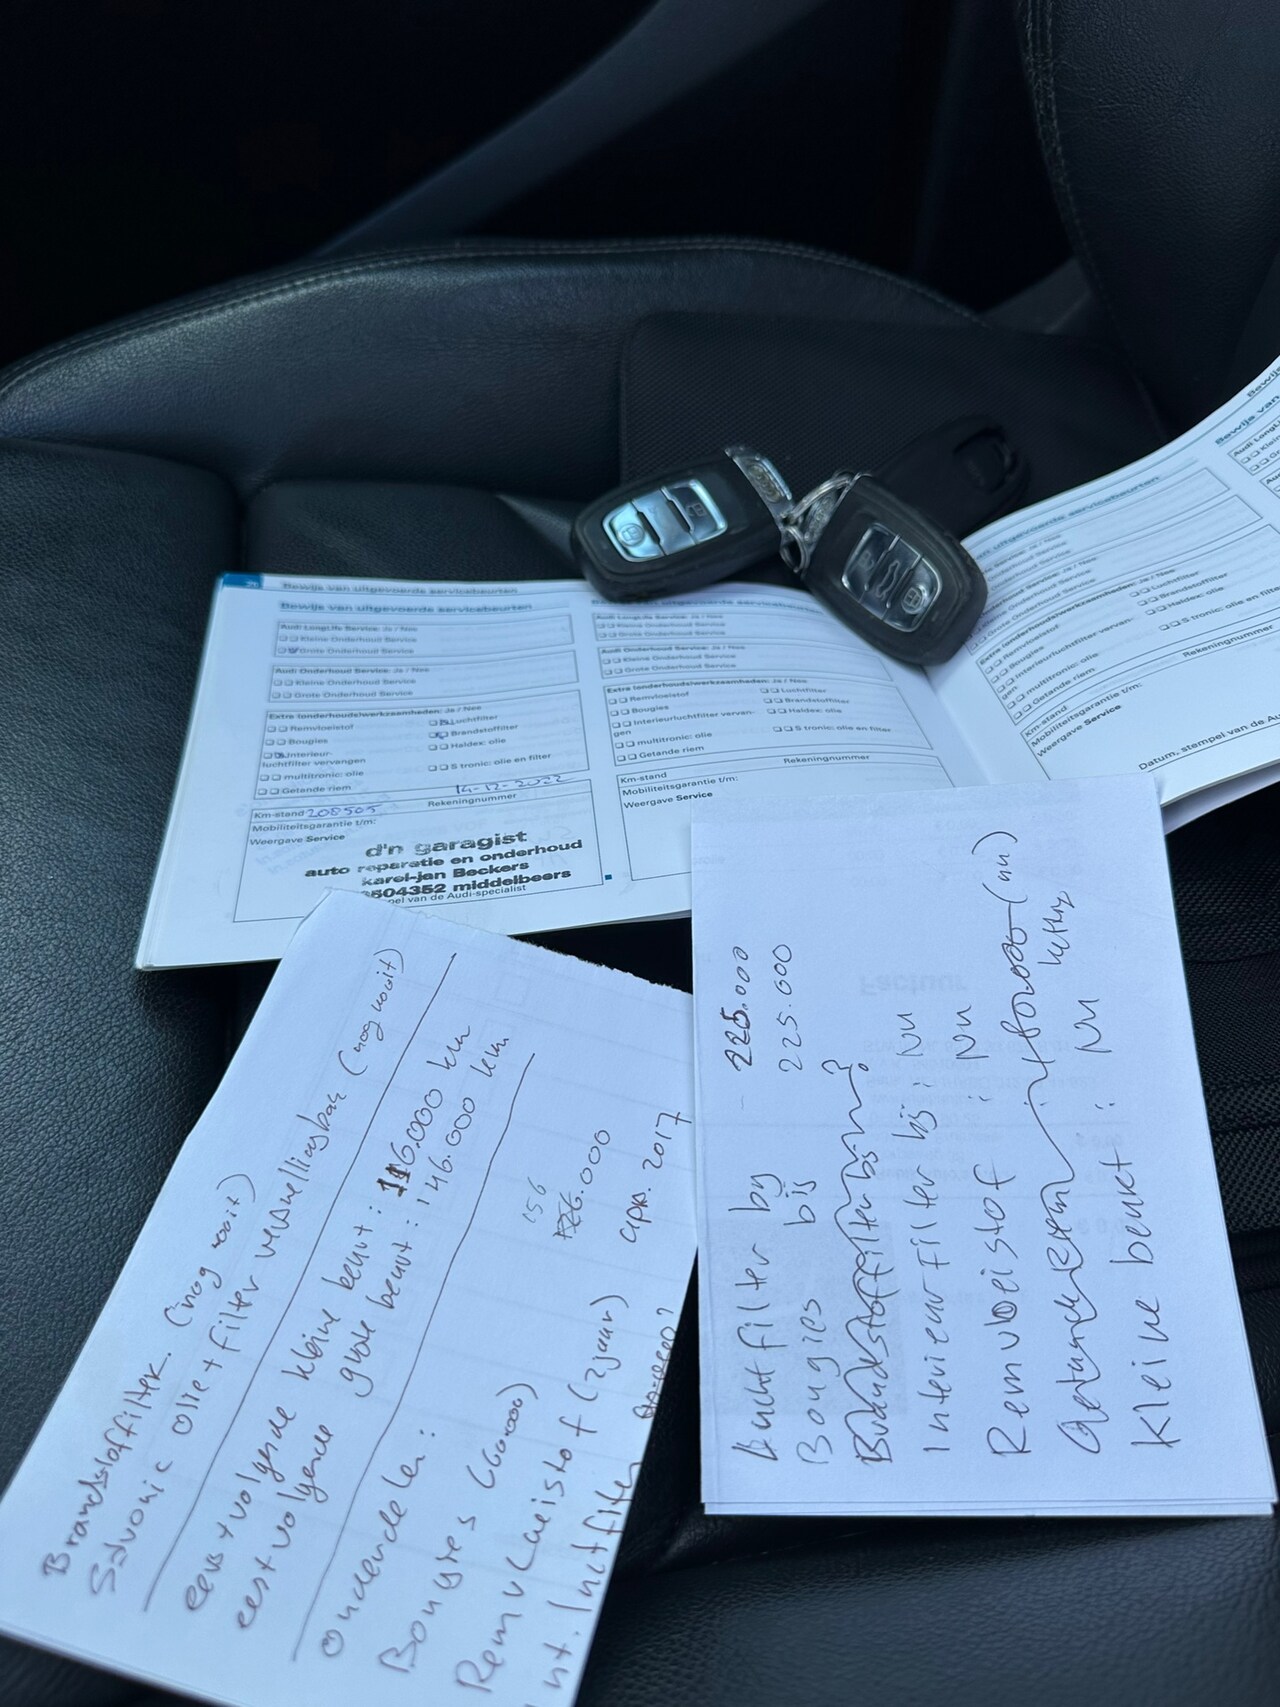 Bewijs van uitgevoerde servicebeurten
Bewijs van uitgevoerde servicebeurten
Audi LongLife Service: Ja / Nee
Kleine Onderhoud Service
Grote Onderhoud Service
Audi Onderhoud Service: Ja / Nee
Kleine Onderhoud Service
Grote Onderhoud Service
Extra (onderhouds)werkzaamheden: Ja / Nee
Remvloeistof
Luchtfilter
Bougies
Brandstoffilter
Interieur-
luchtfilter vervangen
Haldex: olie
multitronic: olie
S tronic: olie en filter
Getande riem
14-12-2022
Km-stand 208505
Rekeningnummer
Mobiliteitsgarantie t/m:
Weergave Service
d'n garagist
auto reparatie en onderhoud
karel-jan Beckers
504352 middelbeers
pel van de Audi-specialist
Audi LongLife Service: Ja / Nee
Kleine Onderhoud Service
Grote Onderhoud Service
Audi Onderhoud Service: Ja / Nee
Kleine Onderhoud Service
Grote Onderhoud Service
Extra (onderhouds)werkzaamheden: Ja / Nee
Remvloeistof
Luchtfilter
Bougies
Brandstoffilter
Interieurluchtfilter vervan-
gen
Haldex: olie
multitronic: olie
S tronic: olie en filter
Getande riem
Rekeningnummer
Km-stand
Mobiliteitsgarantie t/m:
Weergave Service
van uitgevoerde servicebeurten
Grote Onderhoud Service
Extra (onderhouds)werkzaamheden: Ja / Nee
Remvloeistof
Luchtfilter
Bougies
Brandstoffilter
Interieurluchtfilter vervan-
gen
Haldex: olie
multitronic: olie
S tronic: olie en filter
Getande riem
Km-stand
Rekeningnummer
Mobiliteitsgarantie t/m:
Weergave Service
Datum, stempel van de Au
Bewijs
Bewijs van
Audi LongLi
Klein
Brandstoffilter. (nog nooit)
S-tronic olie + filter versnellingbak (nog nooit)
eerstvolgende kleine beurt : 116.000 km
eerstvolgende grote beurt : 146.000 km
Onderdelen:
Bougies (60.000) 156.000
Remvloeistof (2 jaar) apr. 2017
nt. luchtfilter
Luchtfilter by 225.000
Bougies bij 225.000
Brandstoffilter bij ?
Interieurfilter bij : NU
Remvloeistof : NU
Getande riem
ketting
Kleine beurt : NU
Factuur